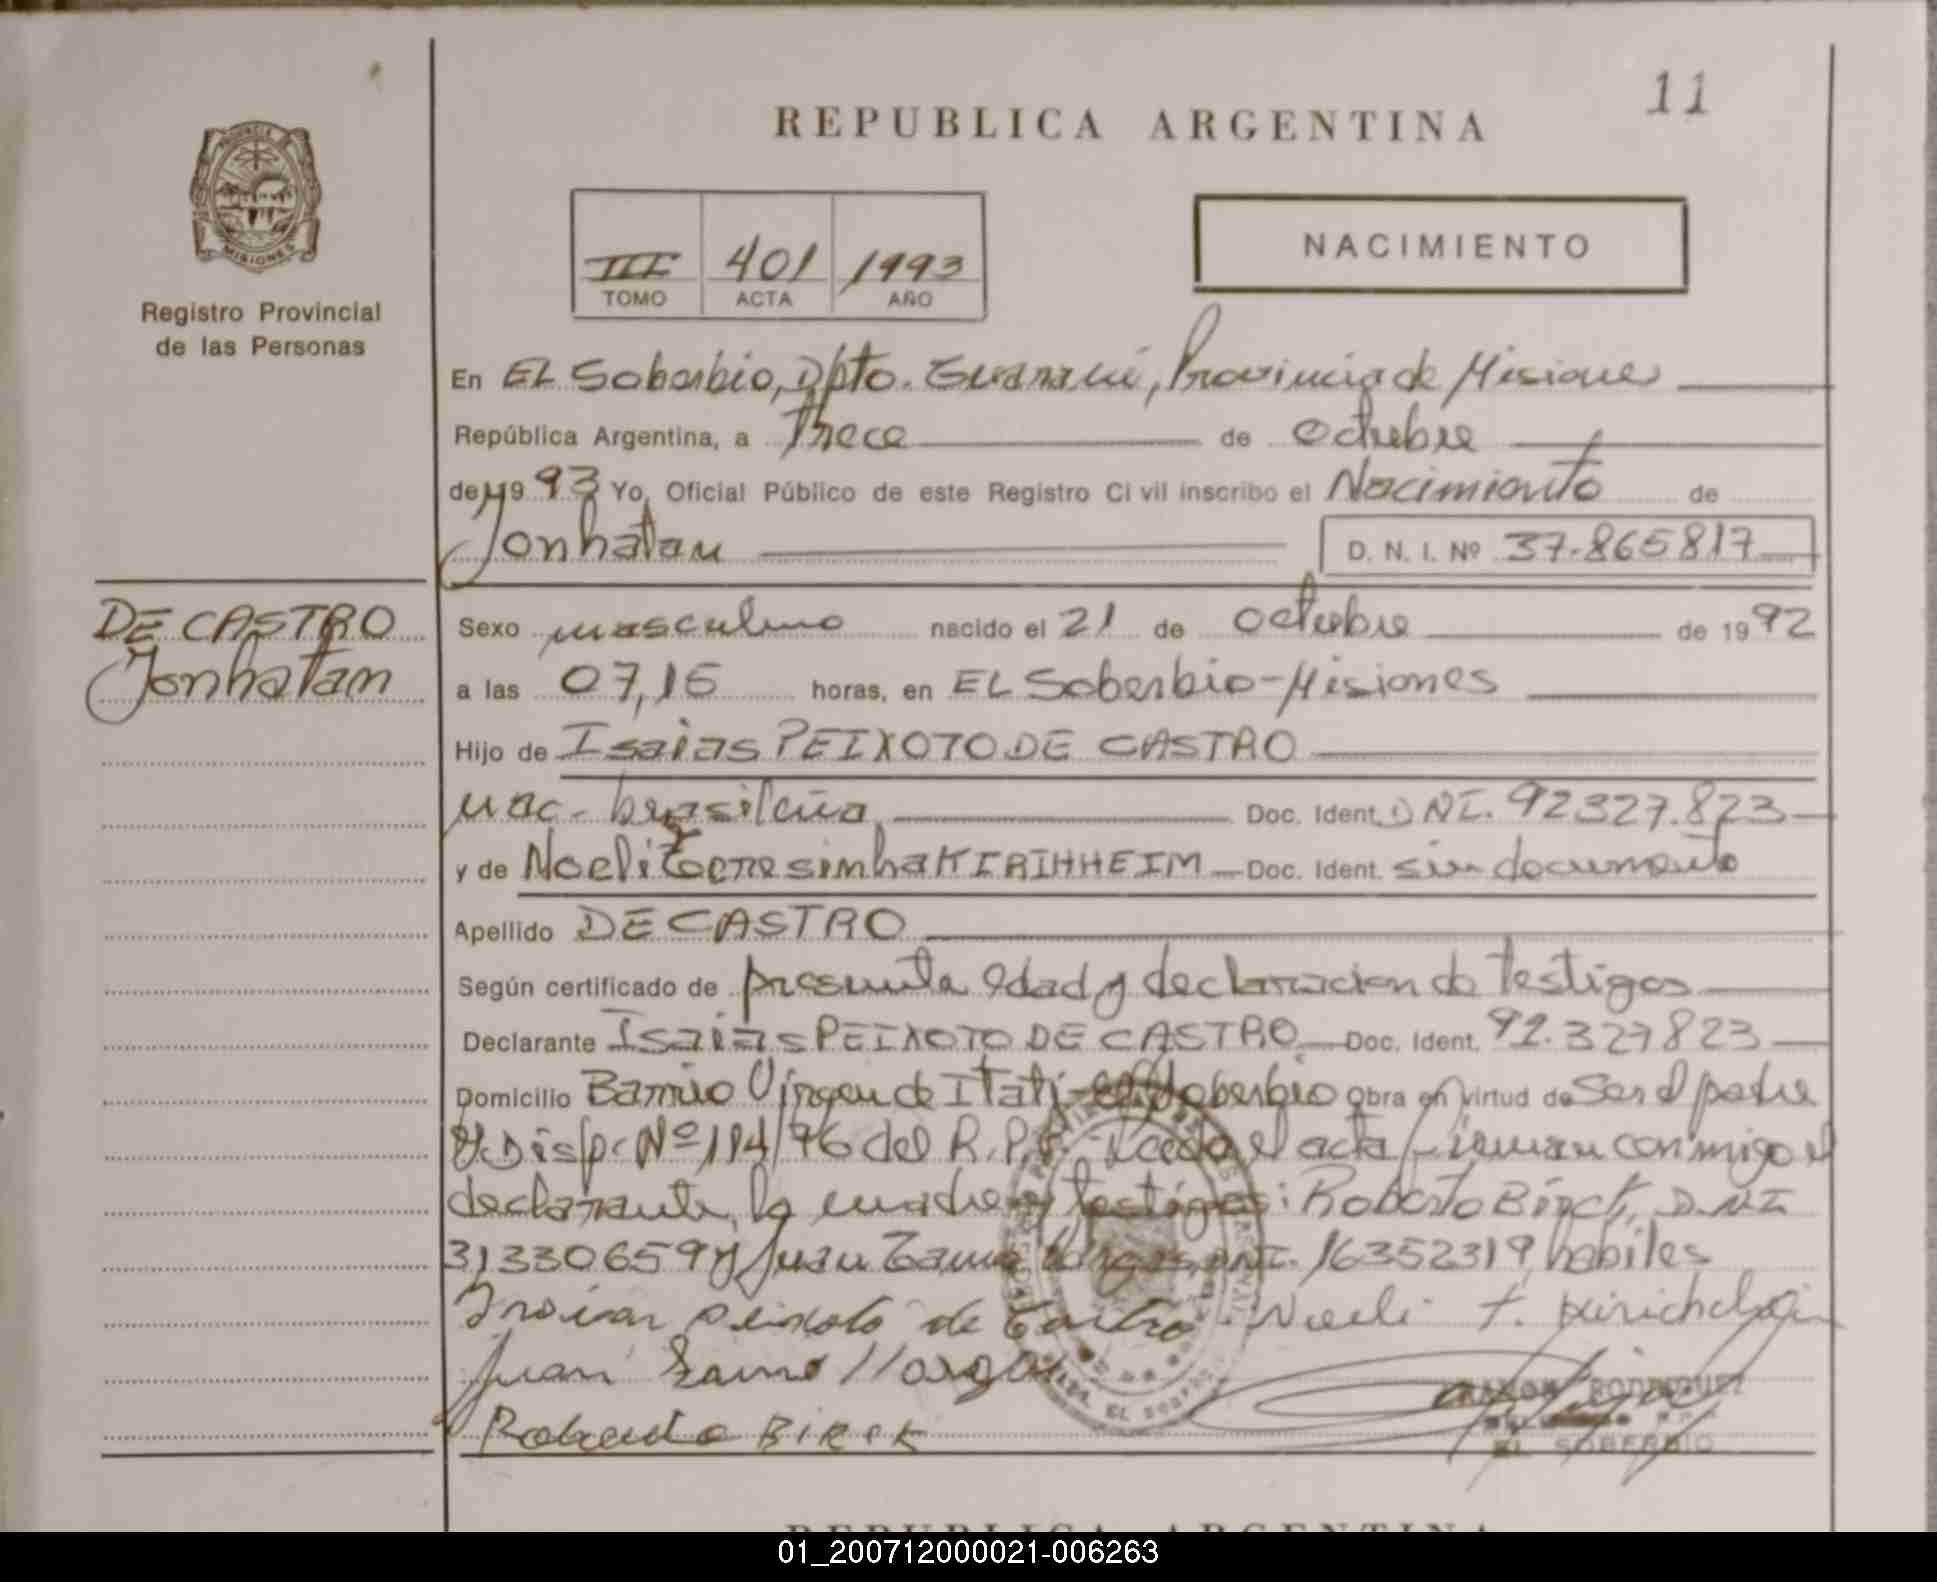 11
REPUBLICA ARGENTINA
PROVINCIA
MISIONES
Registro Provincial
de las Personas
III 401 1993
TOMO ACTA AÑO
NACIMIENTO
En EL Soberbio, Dpto. Guarani, Provincia de Misiones
República Argentina, a Trece de octubre
de 1993 Yo, Oficial Público de este Registro Civil inscribo el Nacimiento de
Jonhatan D. N. I. Nº 37.865817
DE CASTRO
Jonhatan
Sexo masculino nacido el 21 de octubre de 1992
a las 07,15 horas, en EL Soberbio-Misiones
Hijo de Isaias PEIXOTO DE CASTRO
nac. brasileña Doc. Ident. DNI. 92327.823
y de Noeli Teresinha KIRIHHEIM Doc. Ident. sin documento
Apellido DE CASTRO
Según certificado de presunta edad y declaracion de testigos
Declarante Isaias PEIXOTO DE CASTRO Doc. Ident. 92.327823
Domicilio Barrio Virgen de Itati-El Soberbio Obra en virtud de Ser el padre
Disp. Nº 114/96 del R.P.P. Leeda el acta firman conmigo el
declarante, la madre y testigos: Roberto Birck, D.N.I
31330659 y Juan Vargas, DNI. 16352319, habiles
peixoto de Castro Noeli T.
Juan Vargas
Roberto BIRCK
RAMON RODRIGUEZ
EL SOBERBIO
REPUBLICA ARGENTINA
01_200712000021-006263